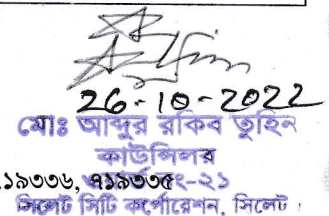 26-10-2022
মোঃ আব্দুর রকিব তুহিন
কাউন্সিলর
১৯৩৩৬, ৭১৯৩৩৫ ২১
সিলেট সিটি কর্পোরেশন, সিলেট।